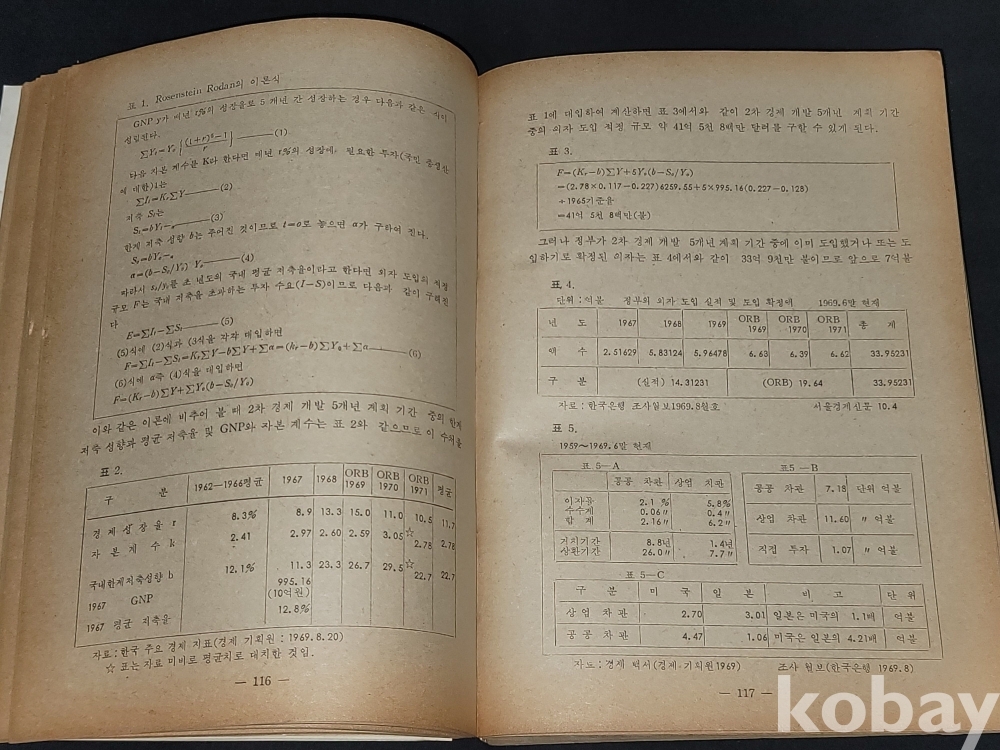 표 1. Rosenstein Rodan의 이론식
GNP y가 매년 t%의 성장율로 5개년 간 성장하는 경우 다음과 같은 식이
성립된다.
∑Yt=Yo{(1+r)⁵−1 / r}———(1)
다음 자본 계수를 K라 한다면 매년 r%의 성장에 필요한 투자(국민 총생산
에 대한)I는
∑It=Kr∑Y———(2)
저축 St는
St=bYt−a———(3)
한계 저축 성향 b는 주어진 것이므로 t=o로 놓으면 a가 구하여 진다.
So=bYo−a
a=(b−So/Yo) Yo———(4)
따라서 so/yo를 초 년도의 국내 평균 저축율이라고 한다면 외자 도입의 적정
규모 F는 국내 저축을 초과하는 투자 수요(I−S)이므로 다음과 같이 구해진
다
E=∑It−∑St———(5)
(5)식에 (2)식과 (3식을 각각 대입하면
F=∑It−∑St=Kr∑Y−b∑Y+∑a=(kr−b)∑Yo+∑a———(6)
(6)식에 a즉 (4)식을 대입하면
F=(Kr−b)∑Y+∑Yo(b−So/Yo)
이와 같은 이론에 비추어 볼 때 2차 경제 개발 5개년 계획 기간 중의 한계
저축 성향과 평균 저축율 및 GNP와 자본 계수는 표 2와 같으므로 이 수치를
표 2.
구 분 1962—1966평균 1967 1968 ORB 1969 ORB 1970 ORB 1971 평균
경제성장율 r 8.3% 8.9 13.3 15.0 11.0 10.5 11.7
자본계수 k 2.41 2.97 2.60 2.59 3.05 ☆2.78 2.78
국내한계저축성향 b 12.1% 11.3 23.3 26.7 29.5 ☆22.7 22.7
1967 GNP 995.16 (10억원)
1967 평균 저축율 12.8%
자료:한국 주요 경제 지표(경제 기획원 : 1969.8.20)
☆ 표는 자료 미비로 평균치로 대치한 것임.
— 116 —
표 1에 대입하여 계산하면 표 3에서와 같이 2차 경제 개발 5개년 계획 기간
중의 외자 도입 적정 규모 약 41억 5천 8백만 달러를 구할 수 있게 된다.
표 3.
F=(Kr−b)∑Y+5Yo(b−So/Yo)
=(2.78×0.117−0.227)6259.55+5×995.16(0.227−0.128)
+1965기준율
=41억 5천 8백만(불)
그러나 정부가 2차 경제 개발 5개년 계획 기간 중에 이미 도입했거나 또는 도
입하기로 확정된 외자는 표 4에서와 같이 33억 9천만 불이므로 앞으로 7억불
표 4.
단위:억불 정부의 외자 도입 실적 및 도입 확정액 1969.6말 현재
년 도 1967 1968 1969 ORB 1969 ORB 1970 ORB 1971 총 계
액 수 2.51629 5.83124 5.96478 6.63 6.39 6.62 33.95231
구 분 (실적) 14.31231 (ORB) 19.64 33.95231
자료:한국은행 조사월보1969.8월호 서울경제신문 10.4
표 5.
1959～1969.6말 현재
표 5—A
공공 차관 상업 차관
이자율 2.1 % 5.8%
수수게 0.06〃 0.4〃
합 계 2.16〃 6.2〃
거치기간 8.8년 1.4년
상환기간 26.0〃 7.7〃
표5 —B
공공 차관 7.18 단위 억불
상업 차관 11.60 〃 억불
직접 투자 1.07 〃 억불
표 5—C
구 분 미 국 일 본 비 고 단 위
상업 차관 2.70 3.01 일본은 미국의 1.1배 억불
공공 차관 4.47 1.06 미국은 일본의 4.21배 억불
자료:경제 백서(경제 기획원1969) 조사 월보(한국은행 1969.8)
— 117 —
kobay